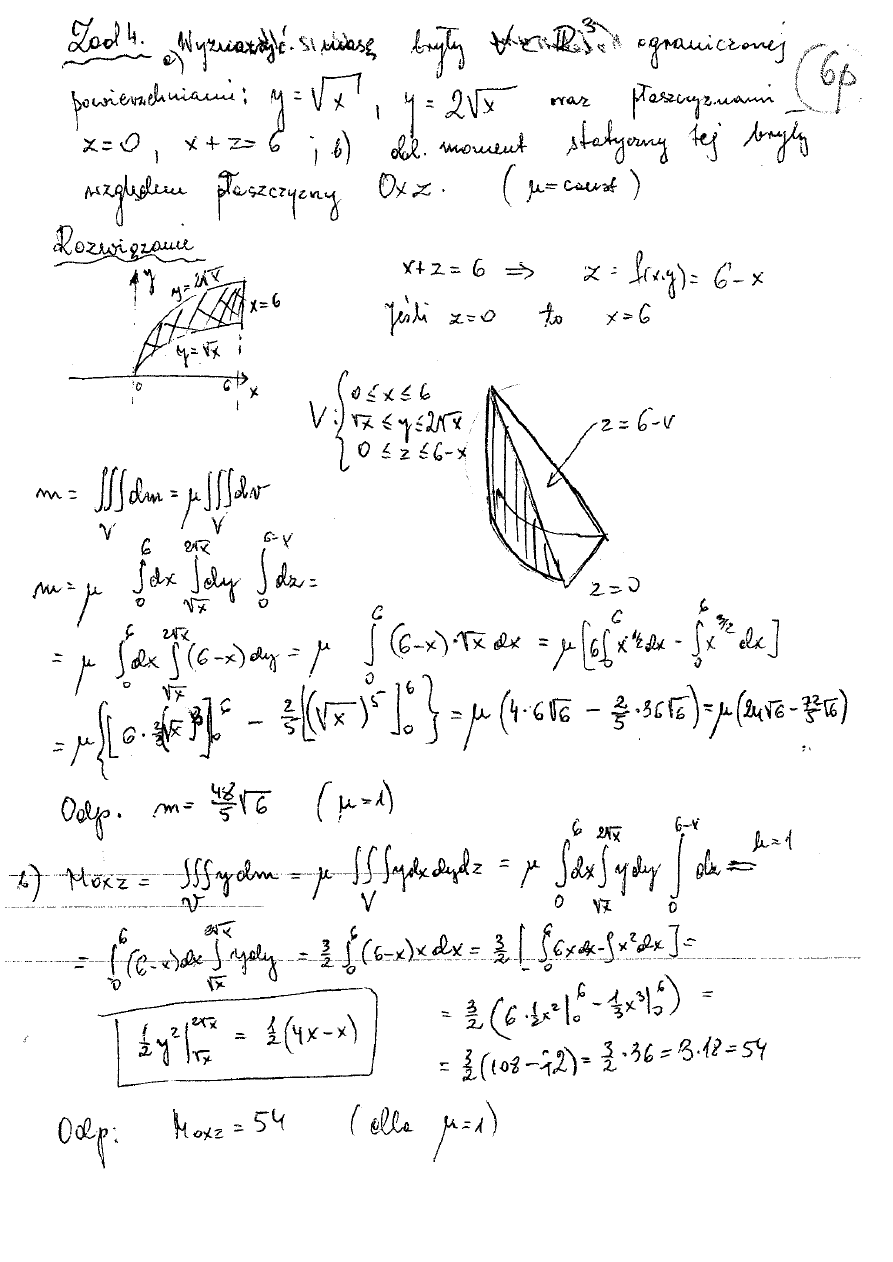 Zad 4. a) Wyznaczyć masę bryły V ⊂ R³, ograniczonej
powierzchniami: y = √x , y = 2√x oraz płaszczyznami
6p
z = 0 , x + z = 6 ; b) obl. moment statyczny tej bryły
względem płaszczyzny Oxz. (μ = const)
Rozwiązanie
y
y = 2√x
x = 6
y = √x
0 6 x
x + z = 6 ⇒ z = f(x,y) = 6 - x
Jeśli z = 0 to x = 6
V: { 0 ≤ x ≤ 6
√x ≤ y ≤ 2√x
0 ≤ z ≤ 6-x
z = 6-x
z = 0
m = ∭_V dm = μ ∭_V dv
m = μ ∫_0^6 dx ∫_{√x}^{2√x} dy ∫_0^{6-x} dz =
= μ ∫_0^6 dx ∫_{√x}^{2√x} (6-x) dy = μ ∫_0^6 (6-x)·√x dx = μ [6∫_0^6 x^{1/2} dx - ∫_0^6 x^{3/2} dx]
= μ {[6 · 2/3 (√x)^3]_0^6 - 2/5 [(√x)^5]_0^6} = μ (4·6√6 - 2/5 · 36√6) = μ (24√6 - 72/5 √6)
Odp. m = 48/5 √6 (μ = 1)
b) M_oxz = ∭_V y dm = μ ∭_V y dx dy dz = μ ∫_0^6 dx ∫_{√x}^{2√x} y dy ∫_0^{6-x} dz = μ=1
= ∫_0^6 (6-x) dx ∫_{√x}^{2√x} y dy = 3/2 ∫_0^6 (6-x) x dx = 3/2 [∫_0^6 6x dx - ∫ x² dx] =
1/2 y² |_{√x}^{2√x} = 1/2 (4x - x)
= 3/2 (6 · 1/2 x² |_0^6 - 1/3 x³ |_0^6) =
= 3/2 (108 - 72) = 3/2 · 36 = 3·18 = 54
Odp: M_oxz = 54 (dla μ = 1)